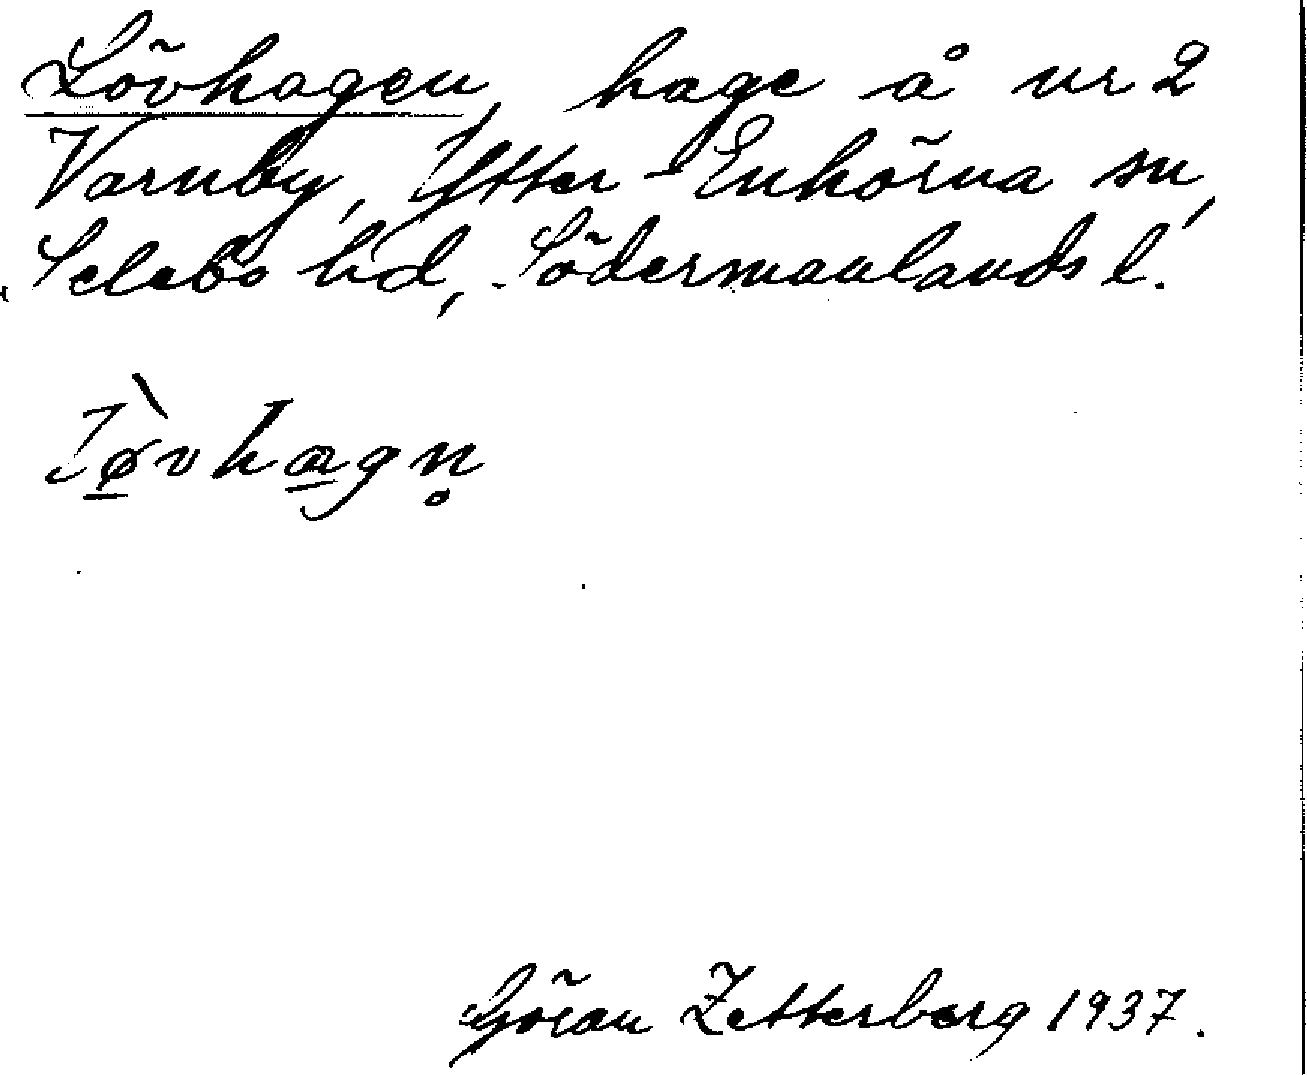 Lövhagen, hage å nr 2
Varnby, Ytter-Enhörna sn,
Selebo hd, Södermanlands l.
lø̠̀vha̠gn̥
Göran Zetterberg 1937.